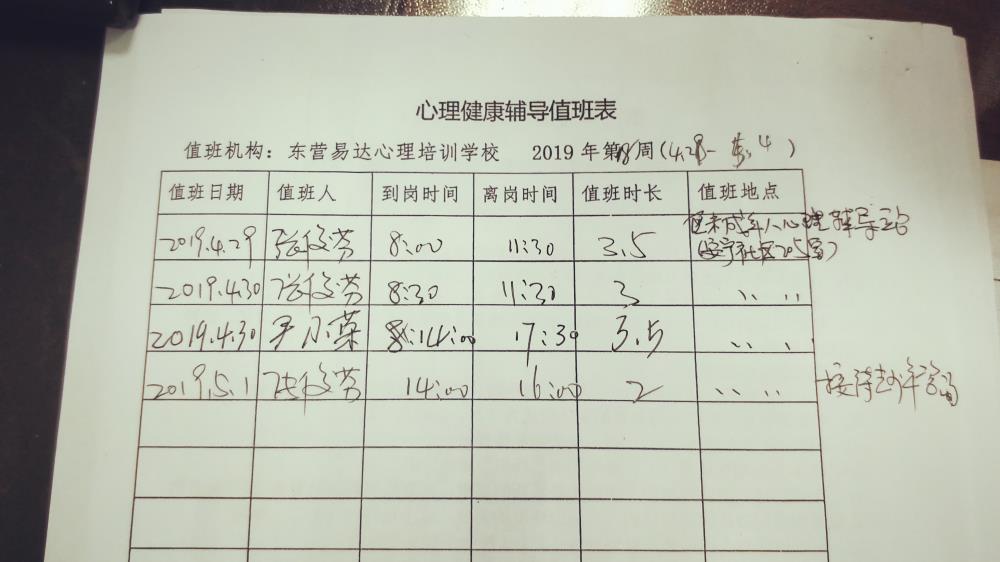 心理健康辅导值班表
值班机构：东营易达心理培训学校 2019年第18周(4.28- 5.4)
值班日期 值班人 到岗时间 离岗时间 值班时长 值班地点
2019.4.29 张 芳 8:00 11:30 3.5 未成年人心理辅导站
(安宁社区205室)
2019.4.30 张 芳 8:30 11:30 3 、、 、、
2019.4.30 尹小荣 14:00 17:30 3.5 、、 、、
2019.5.1 张 芳 14:00 16:00 2 、、 、、 接待青少年咨询